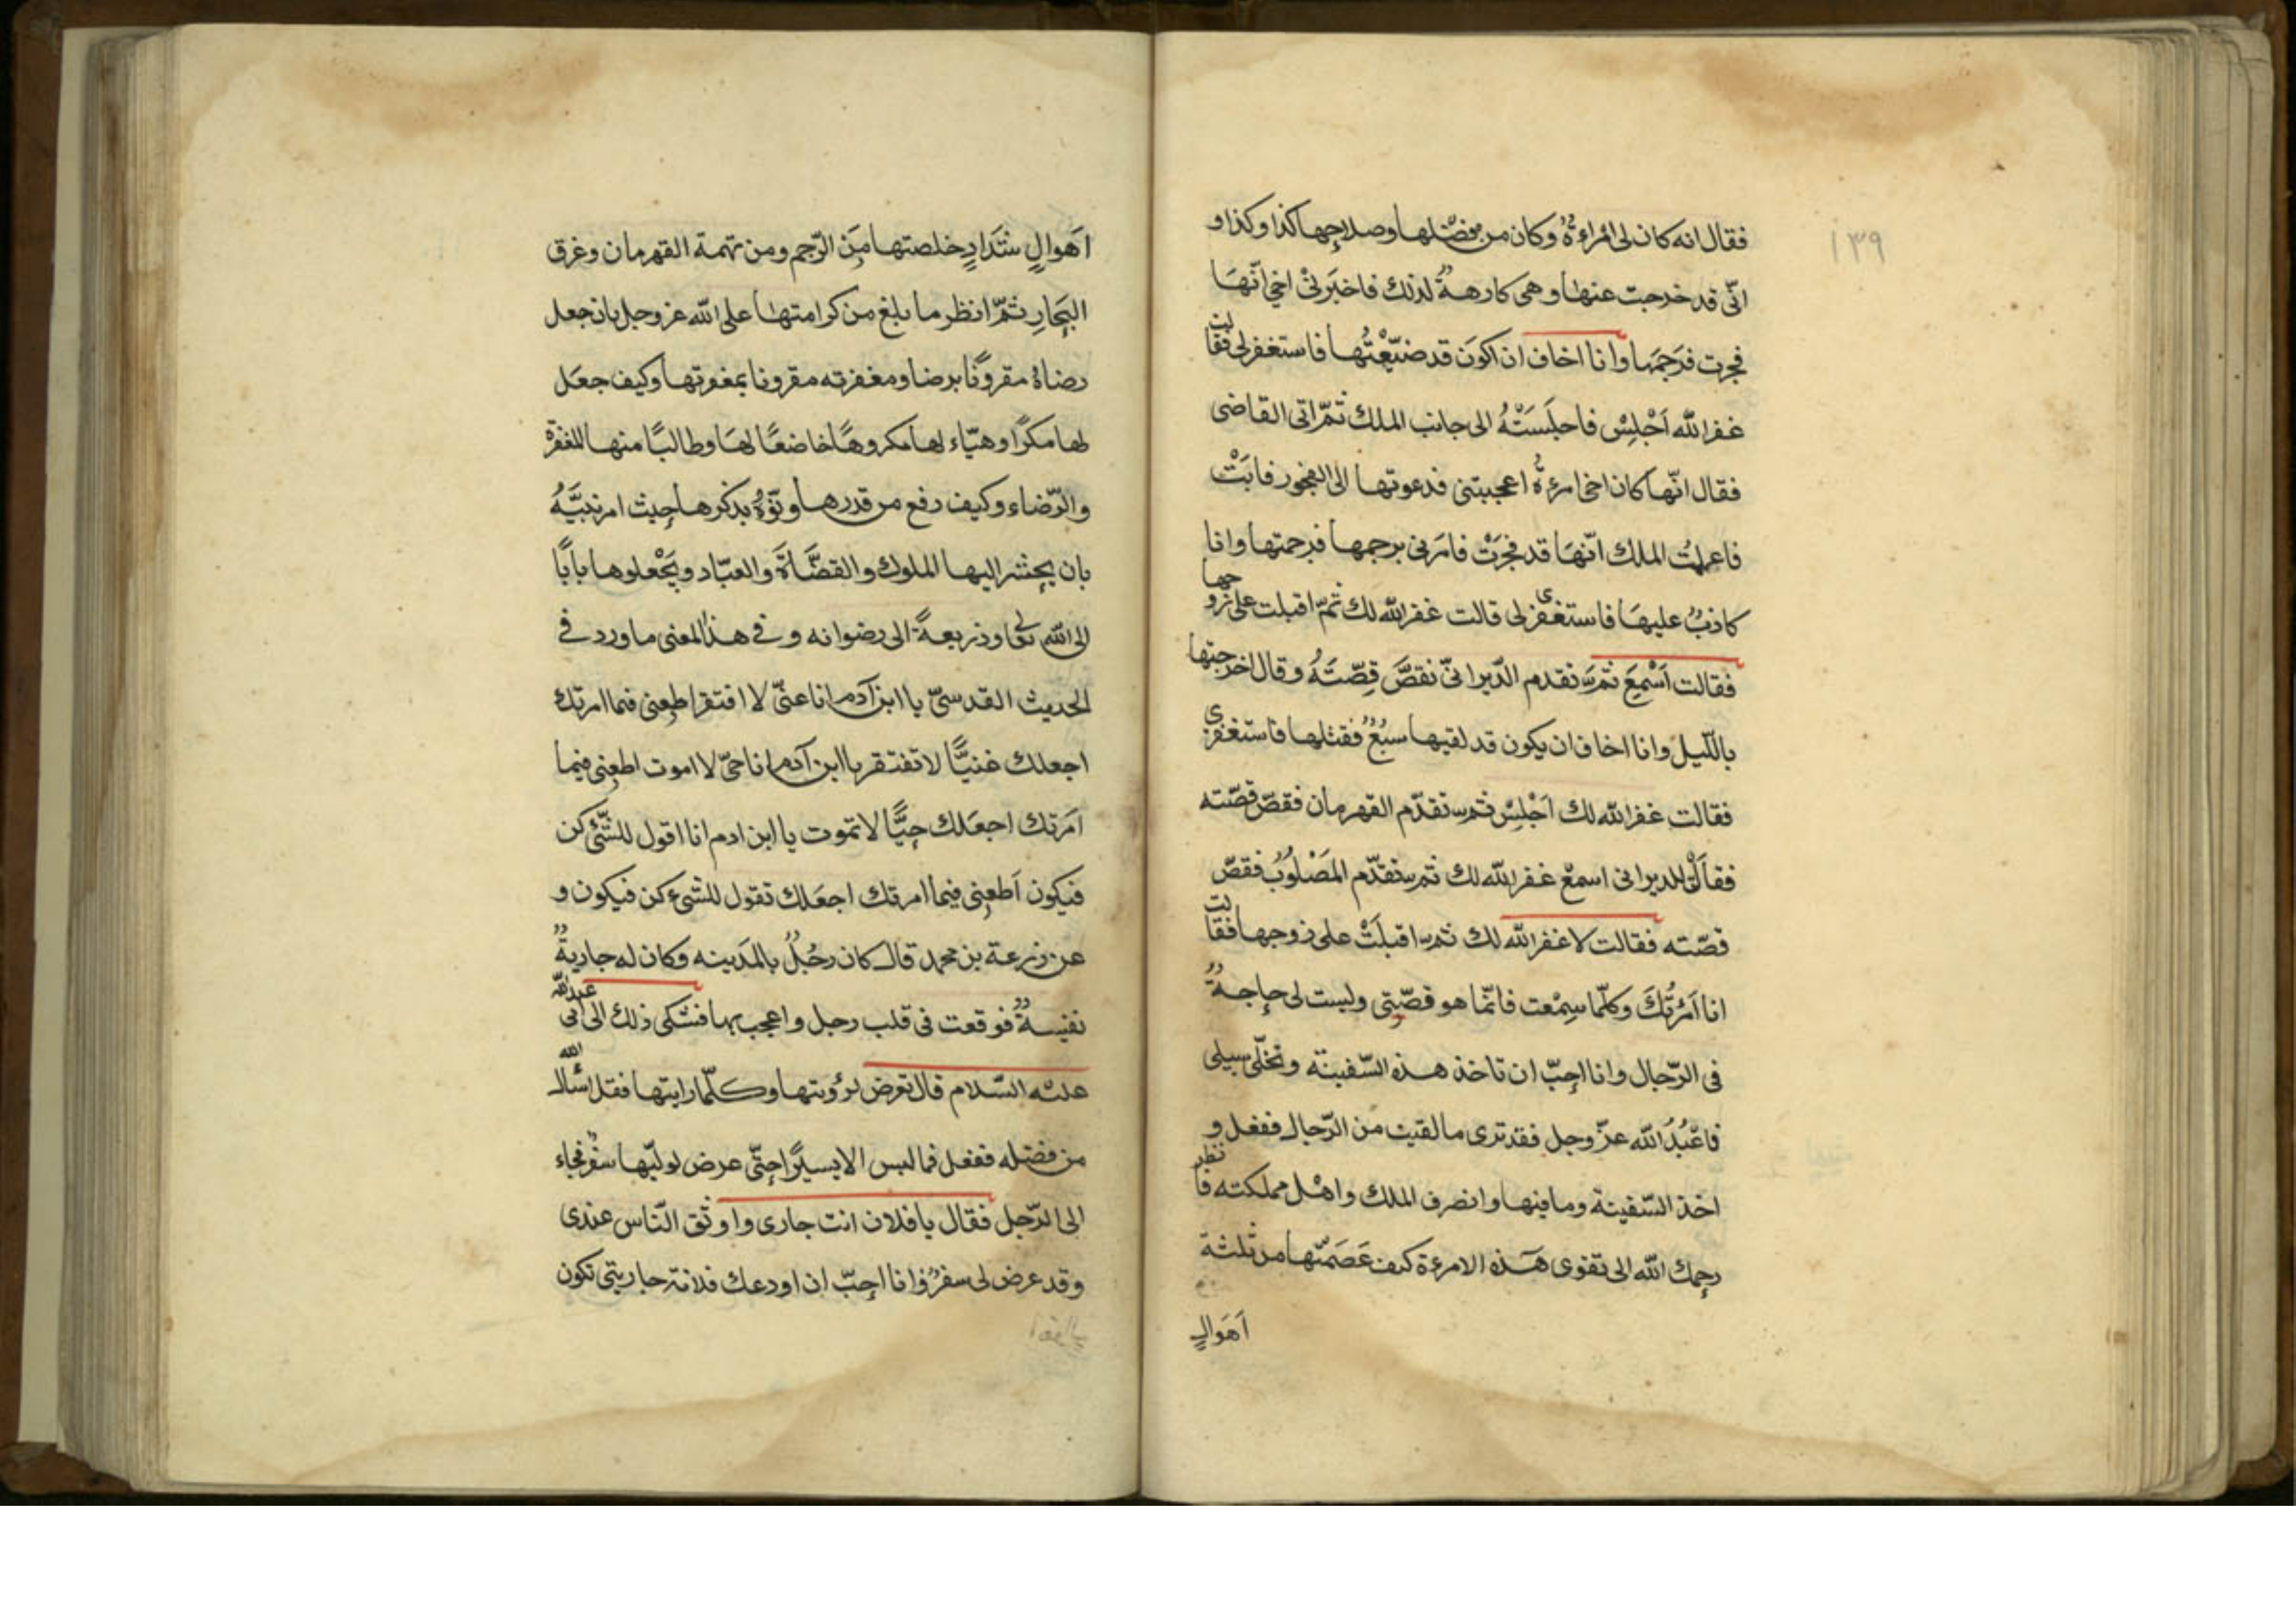 ١٣٩
فقال انه كان لى امراءةٌ وكان من فضلها وصلاحها كذا وكذا و
انّى قد خرجت عنها وهى كارهةٌ لذلك فاخبرنى اخى انّها
فجرت فرجمها وانا اخاف ان اكون قد ضيّعْتُها فاستغفرلى فقالت
غفر الله اَجْلِسْ فاجلَسَتْهُ الى جانب الملك ثمّ اتى القاضى
فقال انّها كان اخى امرءةٌ اعجبتنى فدعوتها الى الفجور فابَتْ
فاعلمتُ الملك انّها قد فجَرَتْ فامرنى برجمها فرجمتها وانا
كاذبٌ عليها فاستغفرى لى قالت غفر الله لك ثمّ اقبلت على زوجها
فقالت اَسْمِعَ ثم تقدم الدّيرانىّ نقصَّ قِصّتَهُ وقال اخرجتها
بالّليل وانا اخاف ان يكون قد لقيها سبُعٌ فقتلها فاستغفرى
فقالت غفر الله لك اَجْلِسْ ثم تقدّم القهرمان فقصّ قصّته
فقالت للديرانى اسمعْ غفر الله لك ثم تقدّم المَصْلُوبُ فقصّ
قصّته فقالت لا غفر الله لك ثم اقبلَتْ على زوجها فقالت
انا اَمْرئَتُكَ وكلّما سمِعْت فانّما هو قصّتى وليست لى حاجةٌ
فى الرّجال وانا احِبّ ان تاخذ هذه السّفينة وتخلّى سبيلى
فاَعْبُدَ الله عزّ وجل فقد ترى ما لقيت من الرّجال ففعل و
اخذ السّفينة وما فيها وانصرف الملك واهْل مملكته فانظر
رحمك الله الى تقوى هذه الامرءة كيف عَصَمَتّها من ثلثة
اَهَوالٍ
اَهوالٍ شَدَادٍ خلصتها مِنَ الرّجم ومن تهمة القهرمان وغرق
البِحَارِ ثمّ انظر ما بلغ من كرامتها على الله عز وجل بان جعل
رضاهُ مقرونًا برضا ومغفرته مقرونا بمغفرتها وكيف جعَل
لها مكرًا وهيّاء لها مكروهًا خاضعًا لها وطالبًا منها المغفرة
والرّضاء وكيف رفع من قدرها ونَوَّهُ بذكرها حيث امر نبيَّهُ
بان يحشر اليها الملوك والقضَاةَ والعبّاد ويَجْعلوها بابًا
الى الله تعالى وذريعةً الى رضوانه و فى هذا المعنى ما ورد فى
الحديث القدسىّ يا ابن آدم انا غنىّ لا افتقر اطعنى فيما امرتك
اجعلك غنيًّا لا تفتقر يا ابن آدم انا حىّ لا اموت اطعنى فيما
امَرتك اجعَلك حيًّا لا تموت يا ابن ادم انا اقول للشّئ كن
فيكون اَطعنى فيما امرتك اجعَلك تقول للشّىء كن فيكون و
عن زرعة بن محمد قال كان رجُلٌ بالمَدينه وكان له جاريةٌ
نفيسةٌ فوقعت فى قلب رجل واعجب بها فشكى ذلك الى ابى عبدالله
عليه السّلام قال تعرض لرؤيتها وكلّما رايتها فقل اسْأل الله
من فضله ففعل فما لبس الا يسيرًا حتّى عرض لوليّها سفرٌ فجاء
الى الرّجل فقال يا فلان انت جارى واوثق النّاس عندى
وقد عرض لى سفرٌ وانا احِبّ ان اودعك فلانة جاريتى تكون